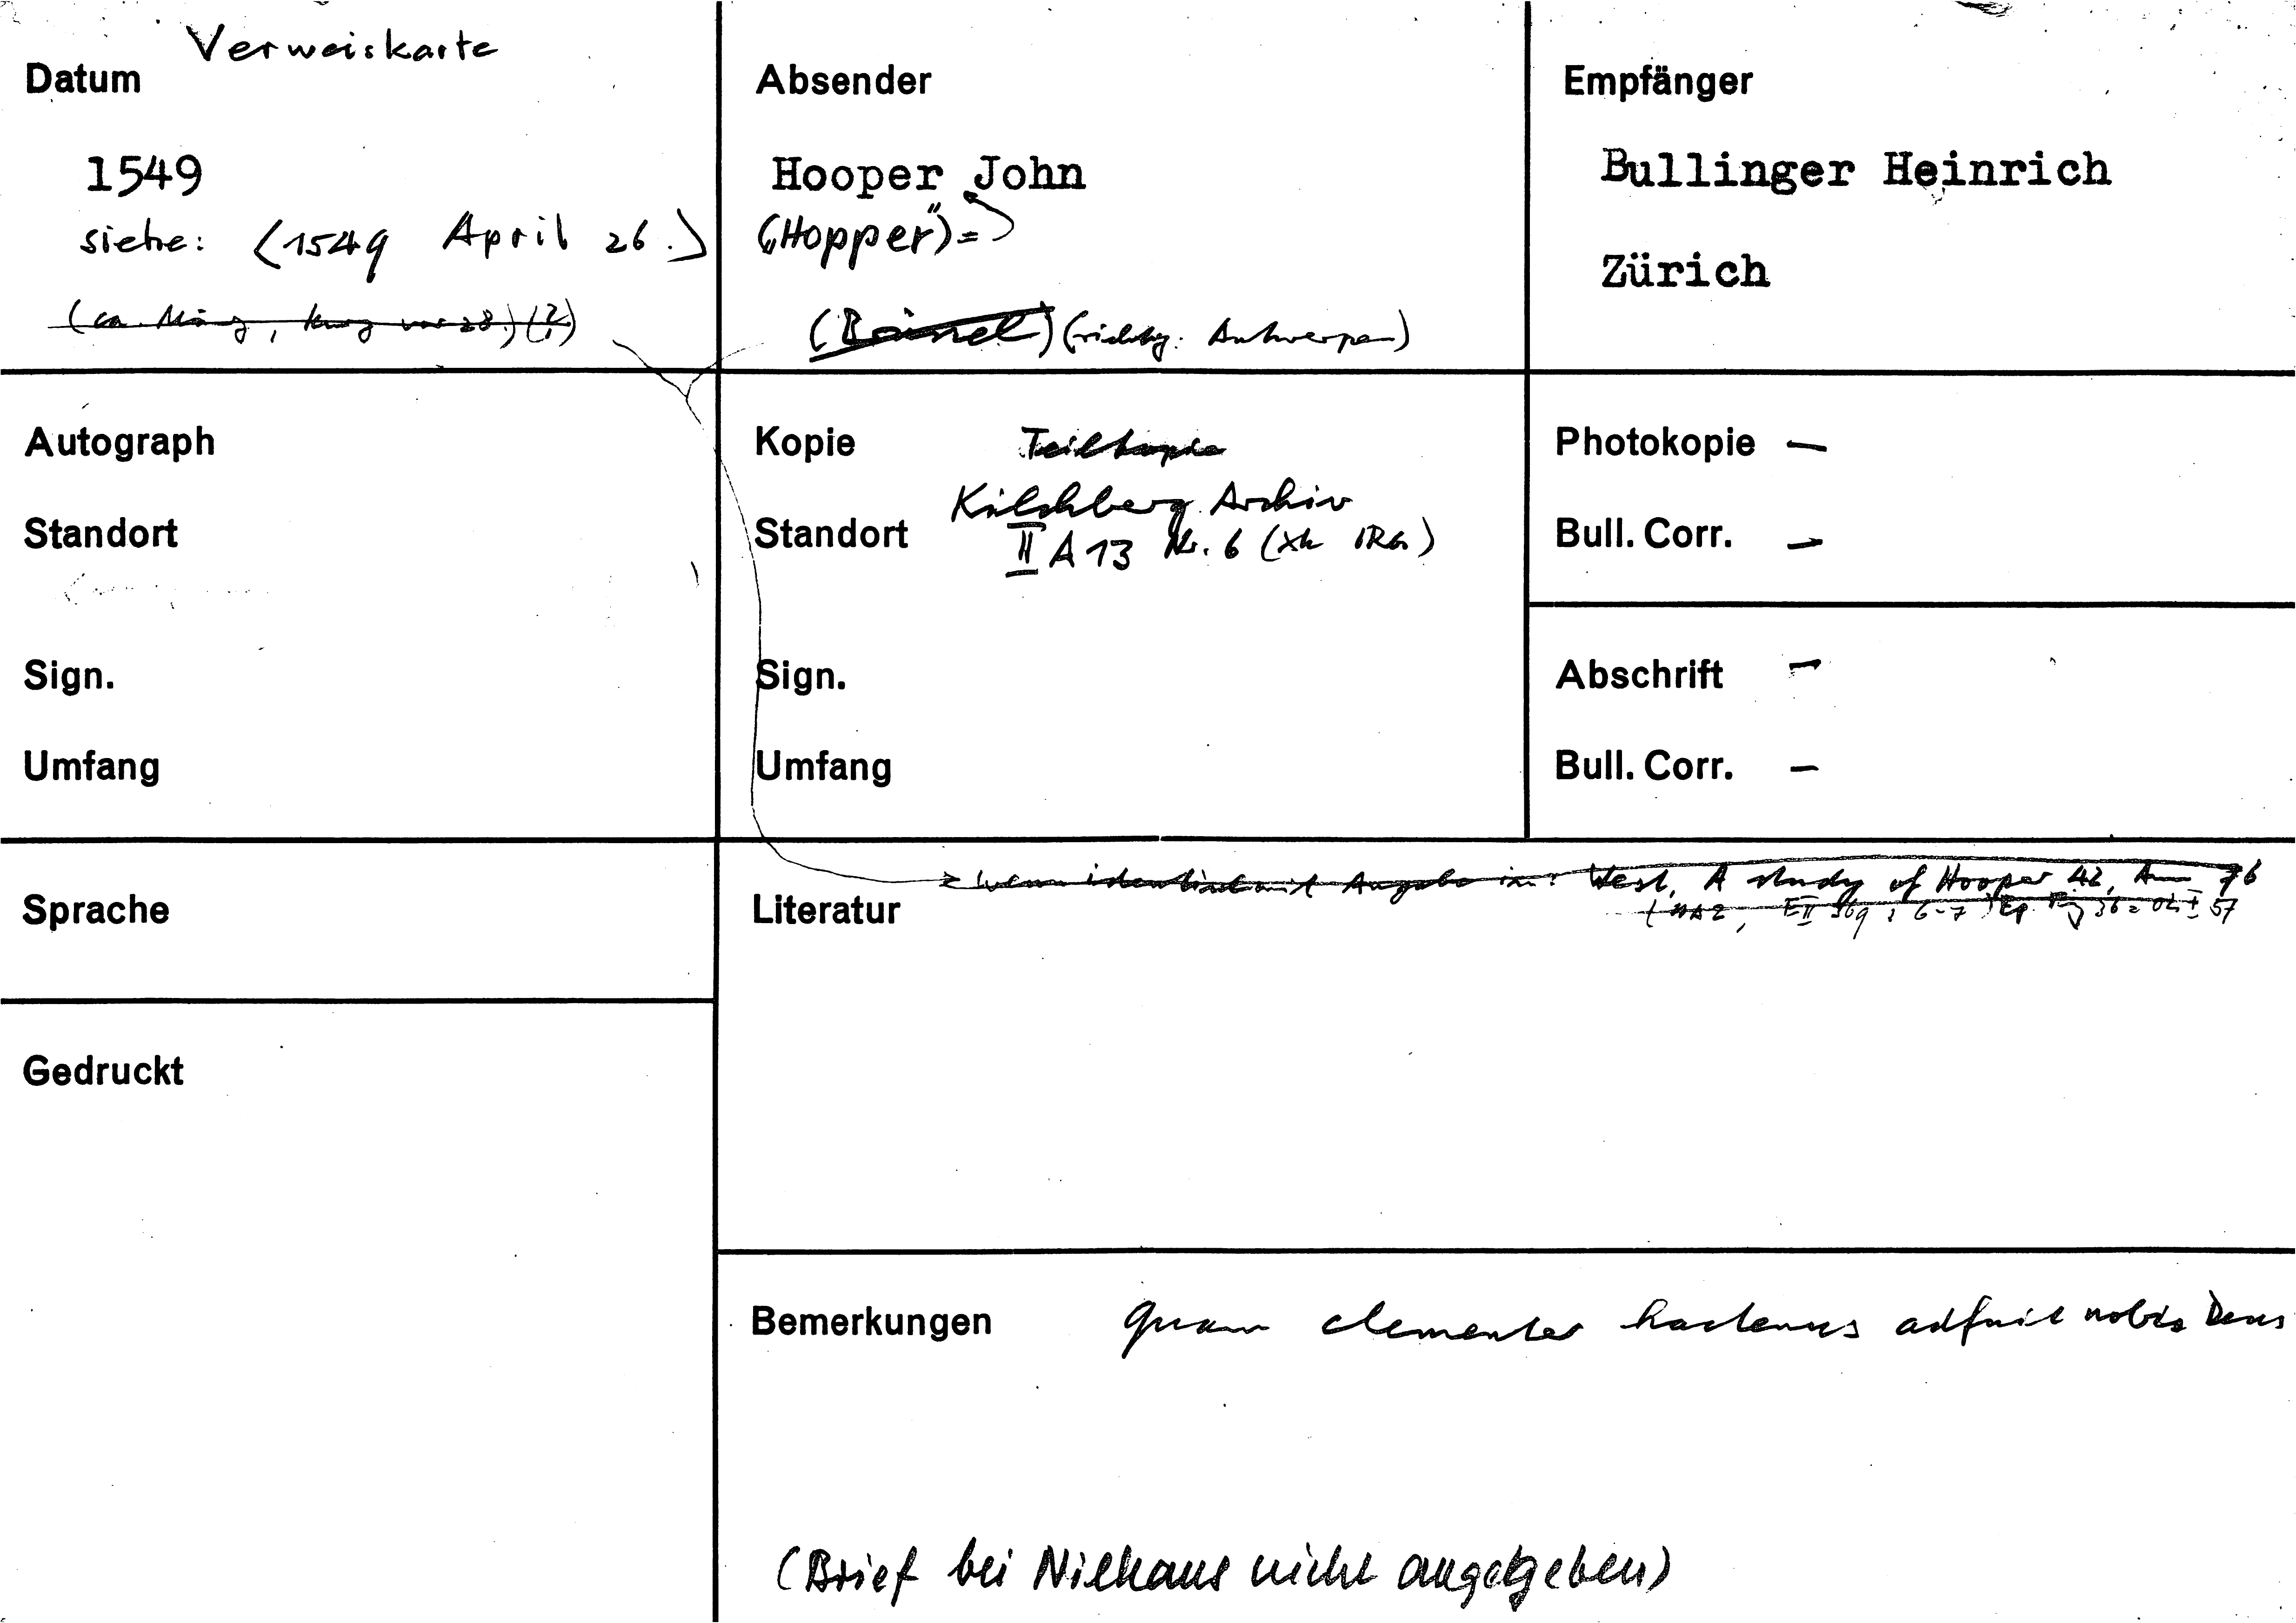 Verweiskarte
Datum
1549
siehe: (1549 April 26.)
(ca. März, kurz vor 28.) (?)
Absender
Hooper John
("Hopper") =
(Brüssel) (richtig: Antwerpen)
Empfänger
Bullinger Heinrich
Zürich
Autograph
Standort
Sign.
Umfang
Kopie Teilkopie
Kilchberg Archiv
Standort II A 13 Nr. 6 (Xk IRG)
Sign.
Umfang
Photokopie —
Bull. Corr. —
Abschrift —
Bull. Corr. —
Sprache
Gedruckt
wenn identisch mit Angabe in: West, A study of Hooper 42, Anm 76
Literatur
Bemerkungen Quam clementer hactenus adfuit nobis Deus
(Brief bei Niehaus nicht angegeben)